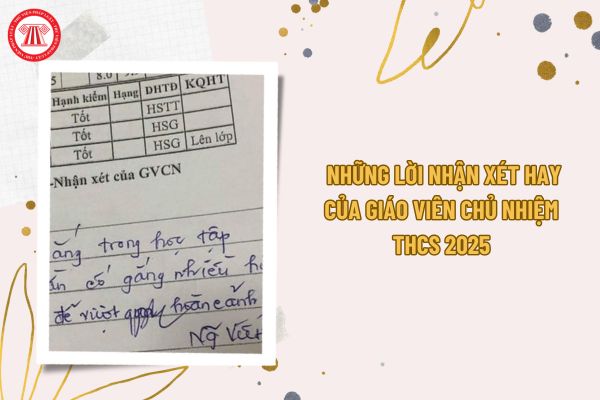 THƯ VIỆN PHÁP LUẬT
5 8.0
Hạnh kiểm Hạng DHTĐ KQHT
Tốt HSTT
Tốt HSG
Tốt HSG Lên lớp
-Nhận xét của GVCN
trong học tập
cố gắng nhiều
để vượt hoàn cảnh
NHỮNG LỜI NHẬN XÉT HAY
CỦA GIÁO VIÊN CHỦ NHIỆM
THCS 2025